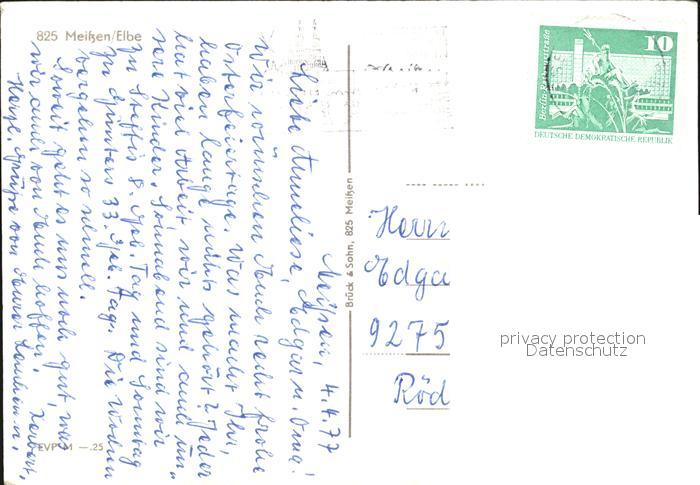 825 Meißen/Elbe
Meißen, 4.4.77
Liebe Anneliese, Edgar u. Oma!
Wir wünschen Euch recht frohe
Osterfeiertage. Was macht Ihr,
haben lange nichts gehört? Jeder
hat viel Arbeit wir und auch un-
sere Kinder. Sonnabend sind wir
zu Steffis 8. Geb. Tag und Sonntag
zu Günters 33. Geb. Tag. Die Wochen
vergehen so schnell.
Soweit geht es uns noch gut, was
wir auch von Euch hoffen.
Herzl. Grüße von Eurer
EVP M —.25
Brück & Sohn, 825 Meißen
10
Berlin, Rathausstraße
DEUTSCHE DEMOKRATISCHE REPUBLIK
Herrn
Edga
9275
Röd
privacy protection
Datenschutz